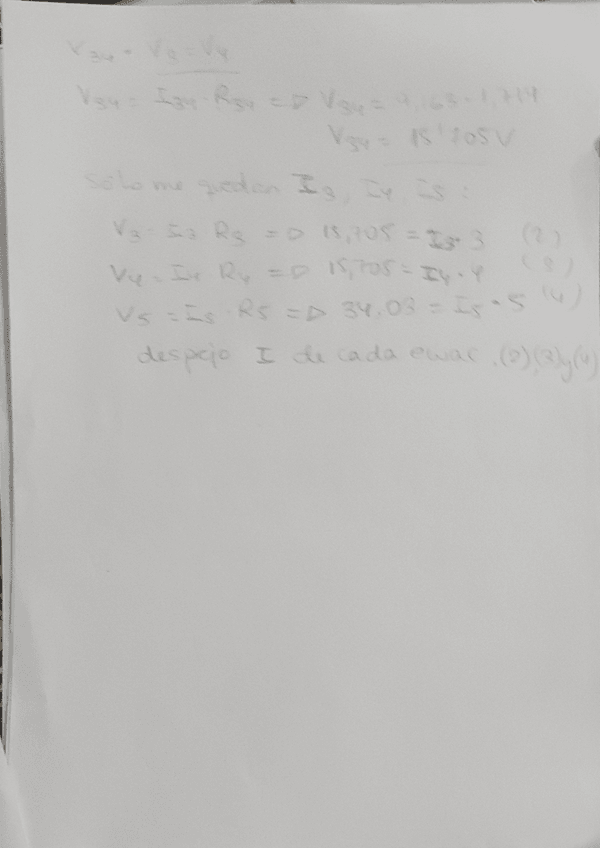 V34 = V3 = V4
V34 = I34 · R34 => V34 = 9,163 · 1,714
V34 = 15'705 V
Sólo me quedan I3, I4, I5 :
V3 = I3 R3 => 15,705 = I3 · 3 (2)
V4 = I4 R4 => 15,705 = I4 · 4 (3)
V5 = I5 · R5 => 34,03 = I5 · 5 (4)
despejo I de cada ecuac. (2)(3)y(4)